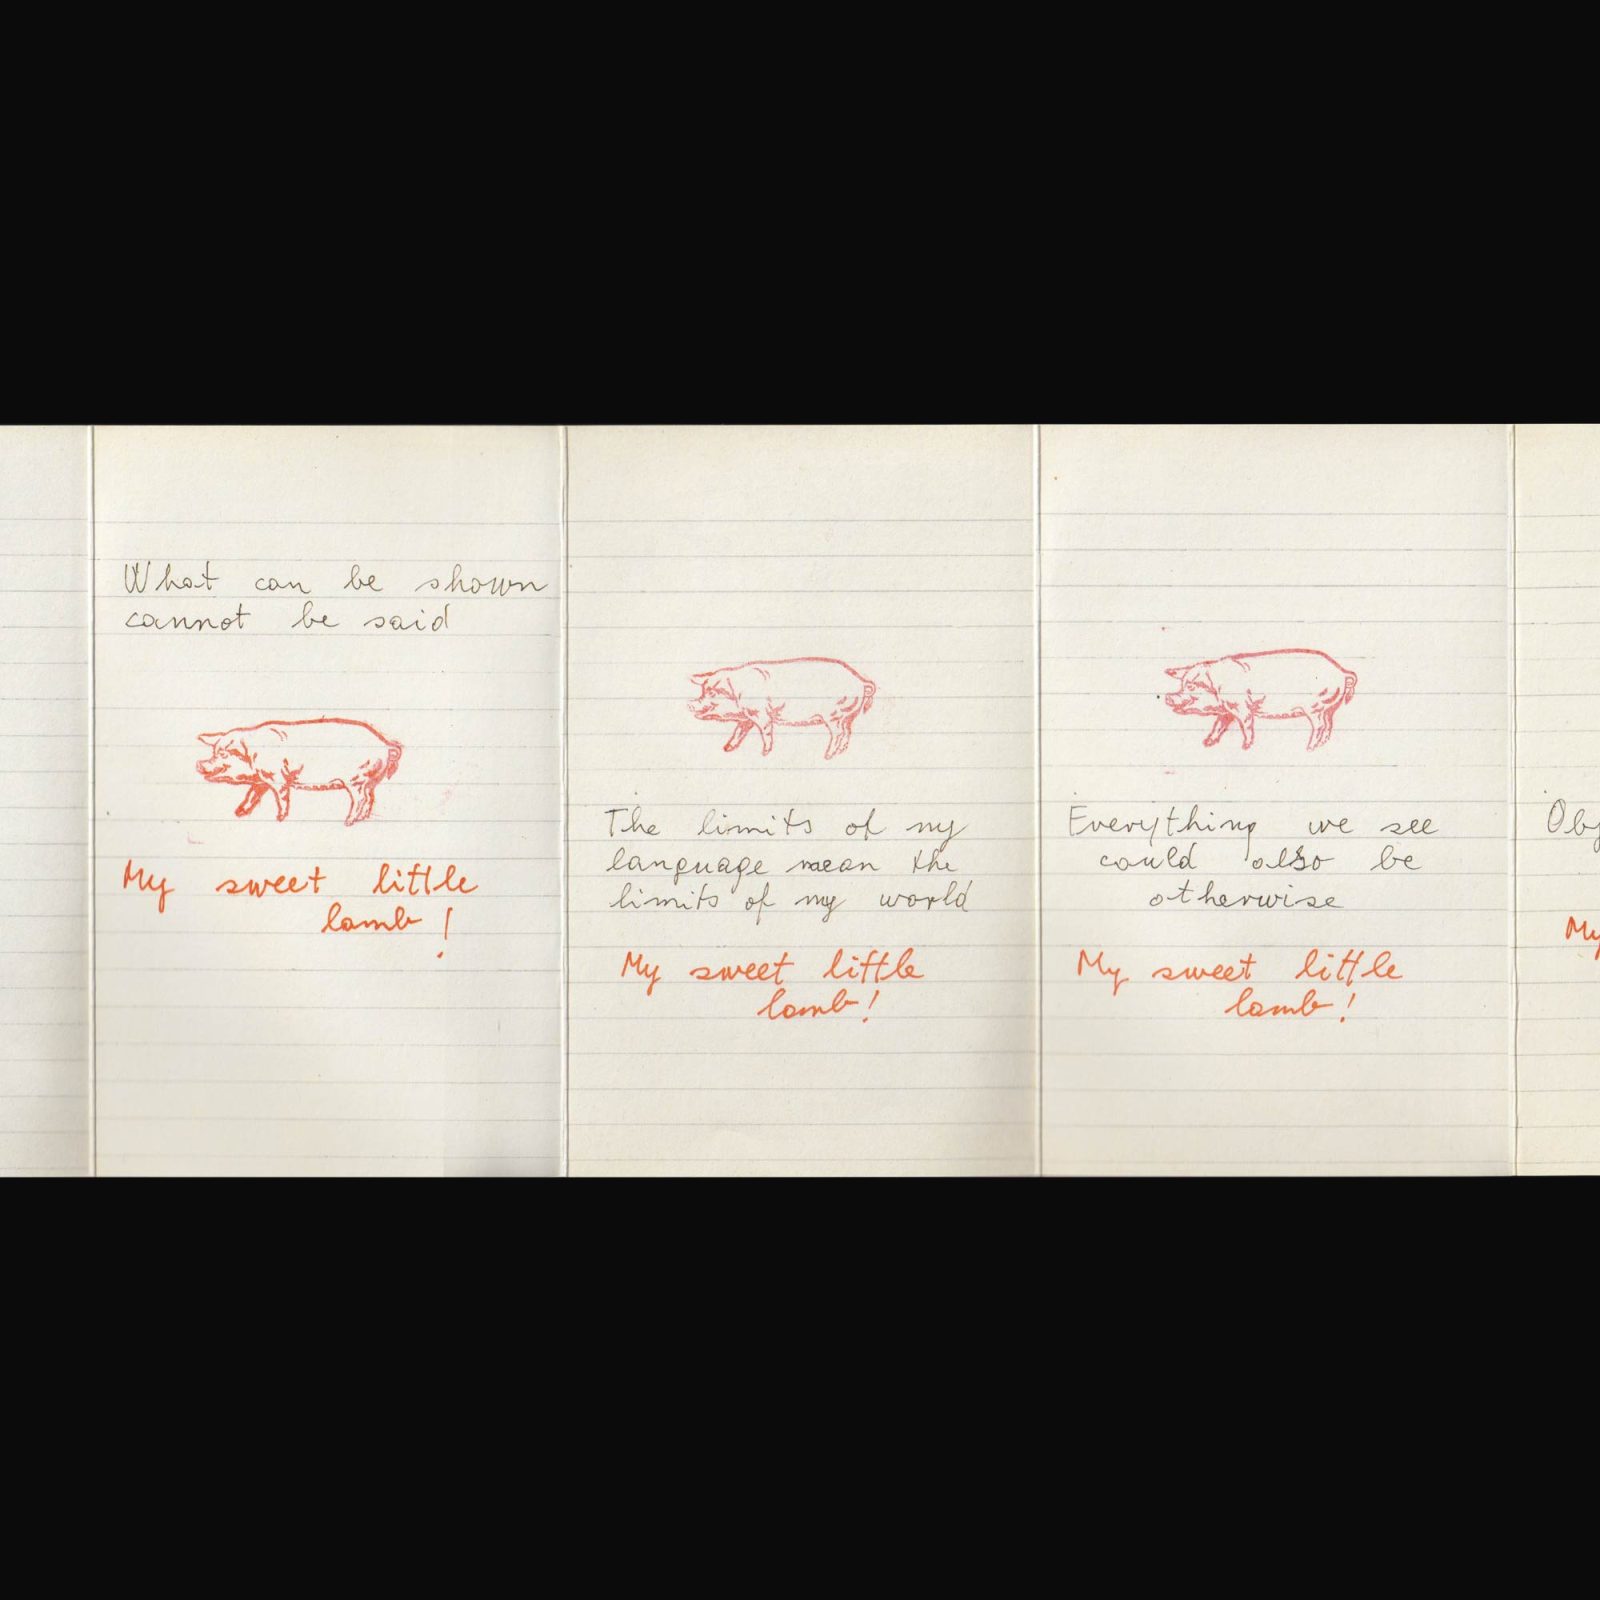 What can be shown
cannot be said
My sweet little
lamb!
The limits of my
language mean the
limits of my world
My sweet little
lamb!
Everything we see
could also be
otherwise
My sweet little
lamb!
Obj
My